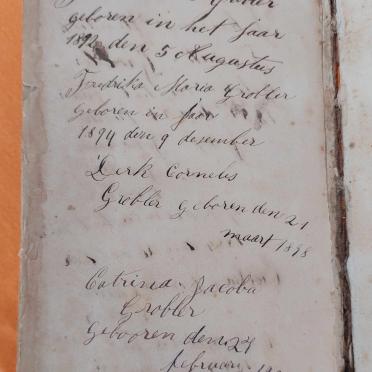 Grobler
geboren in het Jaar
1892 den 5 Augustus
Fredrika Maria Grobler
geboren in Jaar
1894 den 9 desember
Dirk Cornelis
Grobler geboren den 21
maart 1898
Catrina Jacoba
Grobler
Gebooren den 24
februari